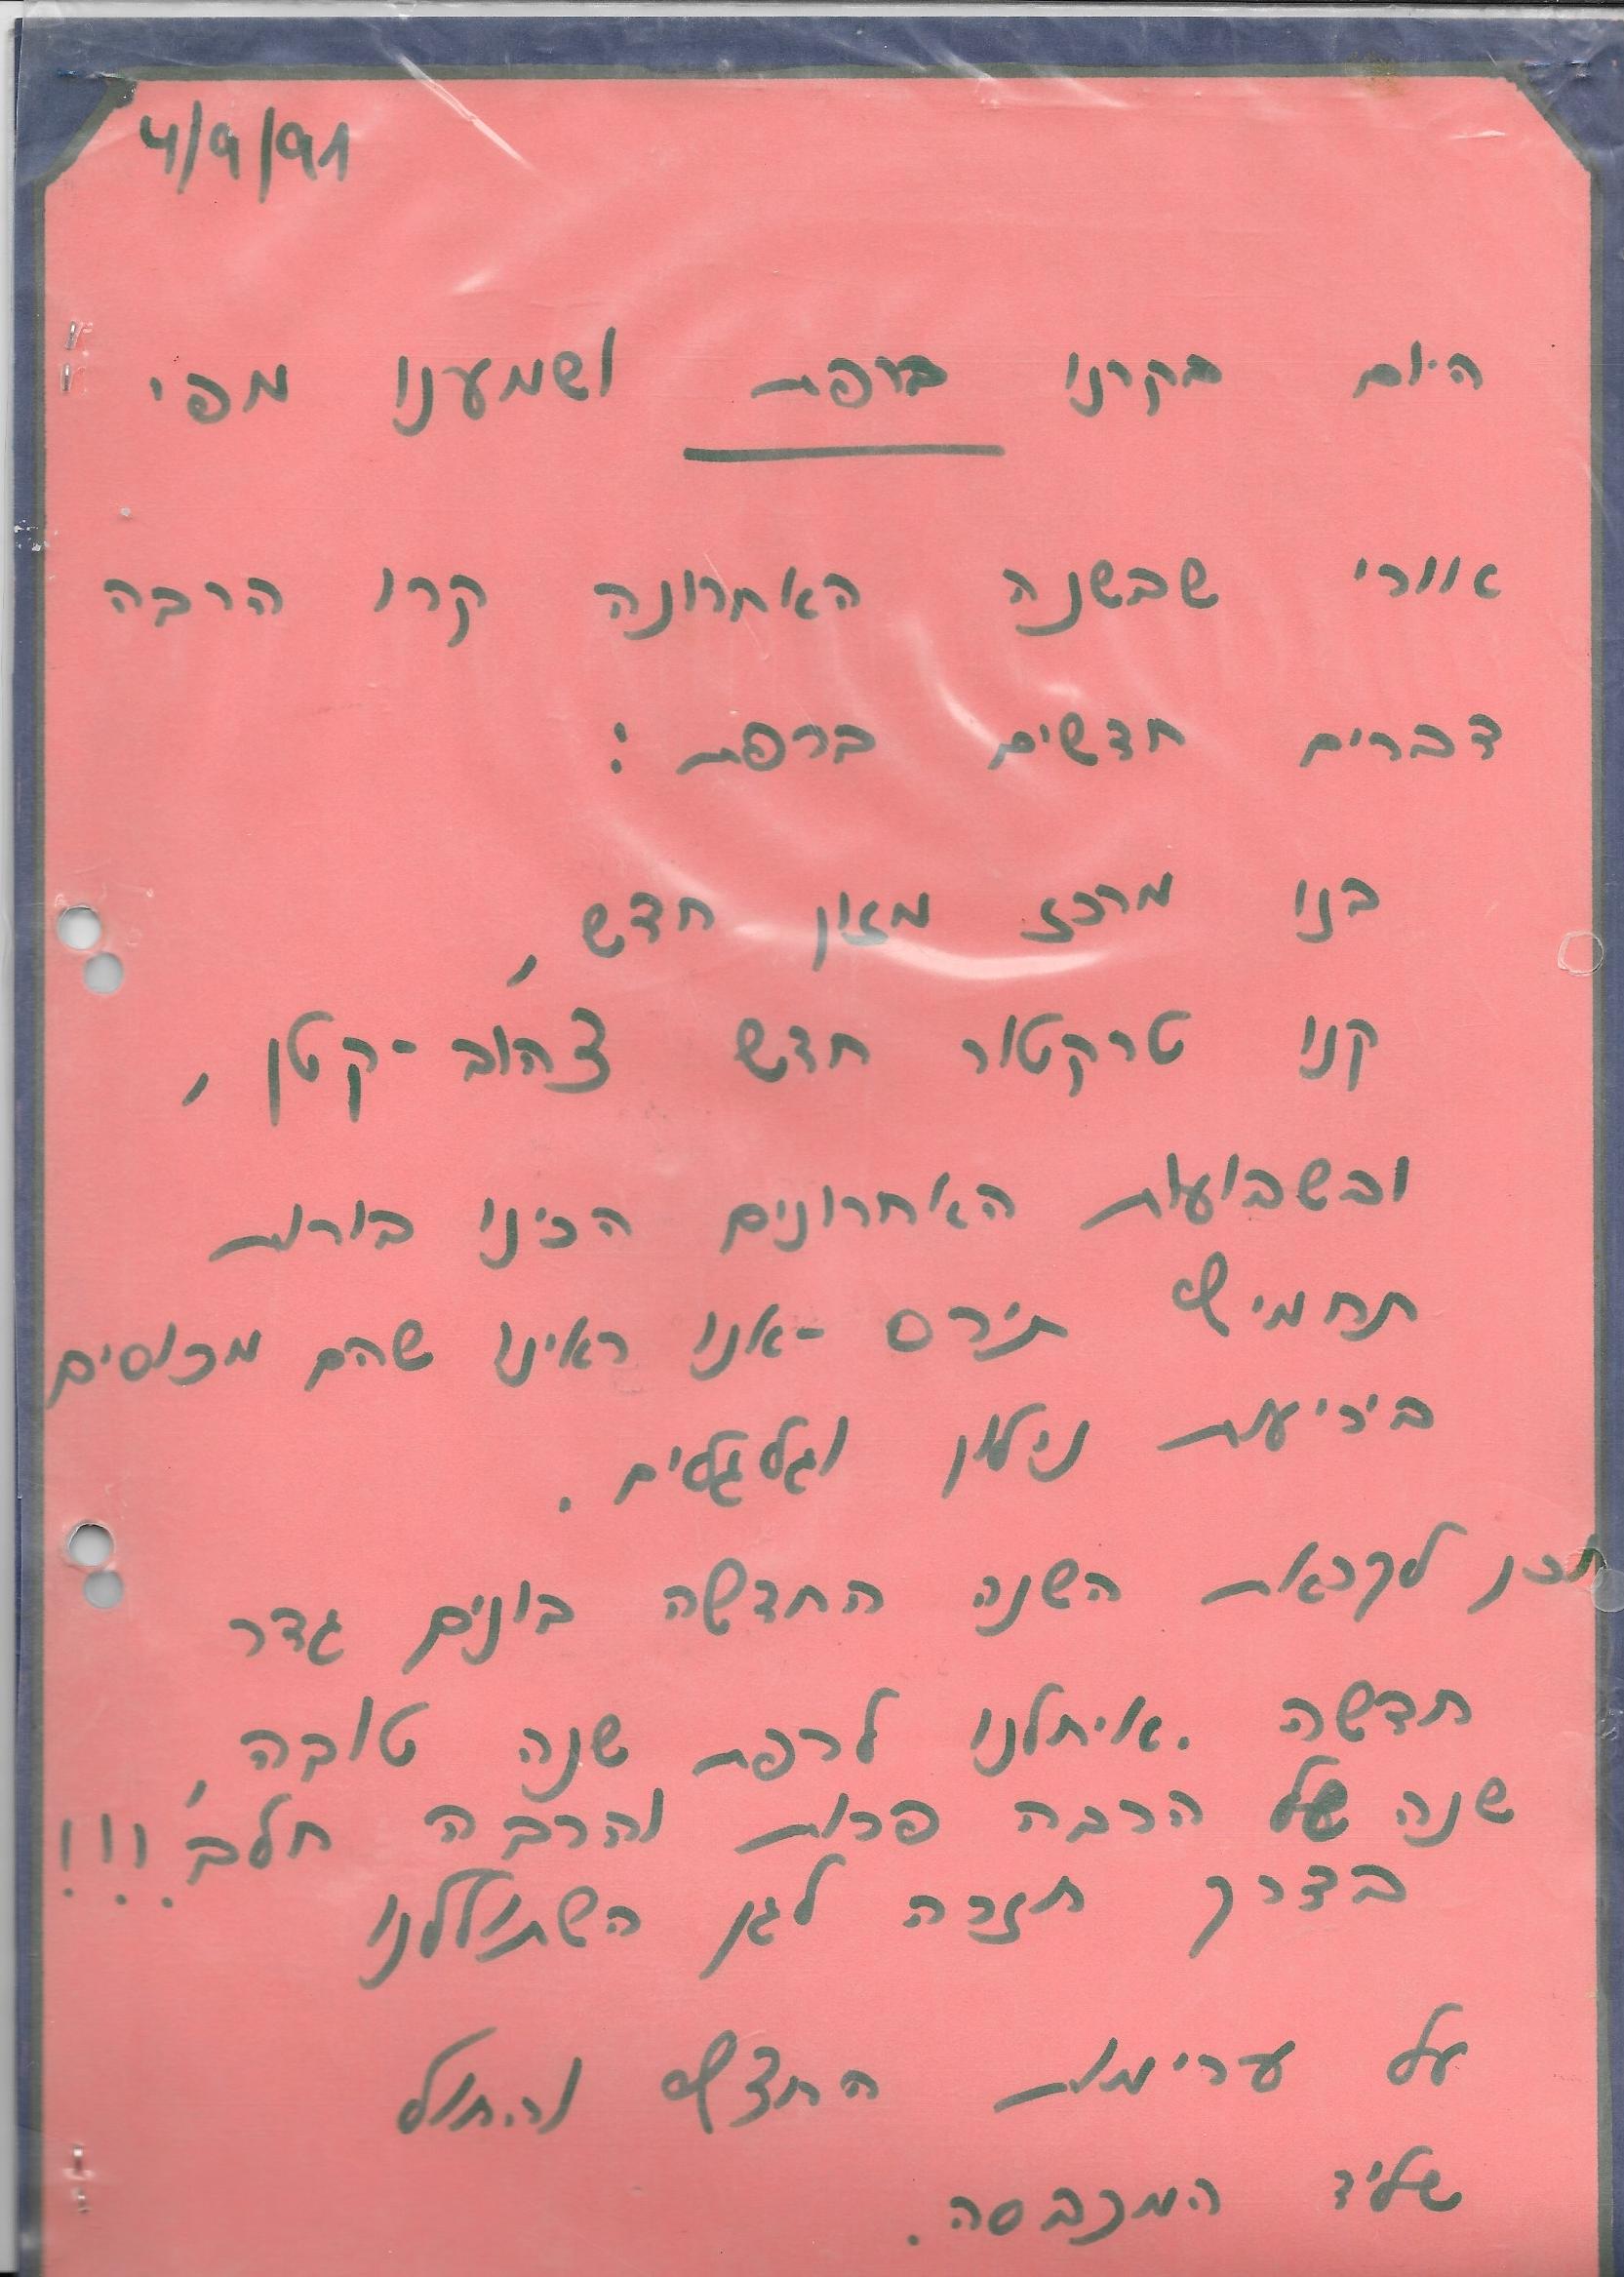 4/9/91
היום בקרנו ברפת ושמענו מפי
אוורי שבשנה האחרונה קרו הרבה
דברים חדשים ברפת :
בנו מרכז מזון חדש ,
קנו טרקטור חדש צהוב-קטן ,
ובשבועות האחרונים הכינו בורות
תחמיץ תירס -אנו ראינו שהם מכוסים
ביריעות נילון וגלגלים .
וכן לקראת השנה החדשה בונים גדר
חדשה .איחלנו לרפת שנה טובה ,
שנה של הרבה פרות והרבה חלב !!!
בדרך חזרה לגן השתוללנו
על ערימות החצץ והחול
שליד המכבסה .